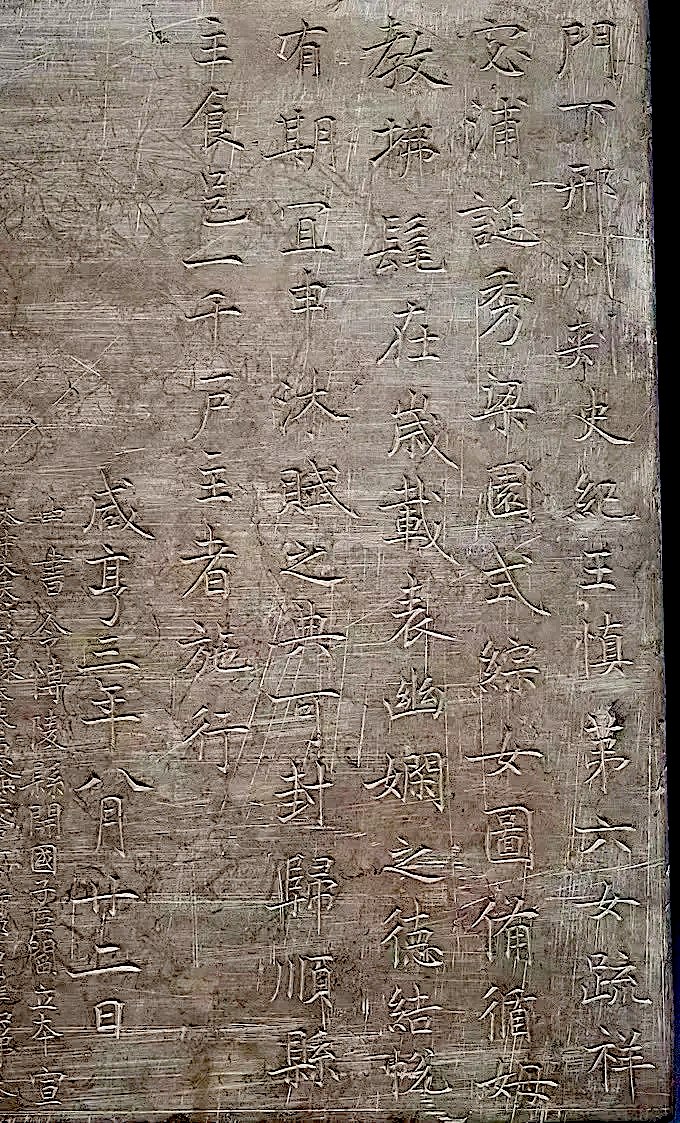 門下邢州刺史紀王慎第六女疏祥
宓浦誕秀梁園式綜女圖備循姆
教拂髦在歲載表幽嫻之德結帨
有期宜申沐賦之典可封歸順縣
主食邑一千戶主者施行
咸亨三年八月廿二日
中書令濤陵縣開國子臣閻立本宣